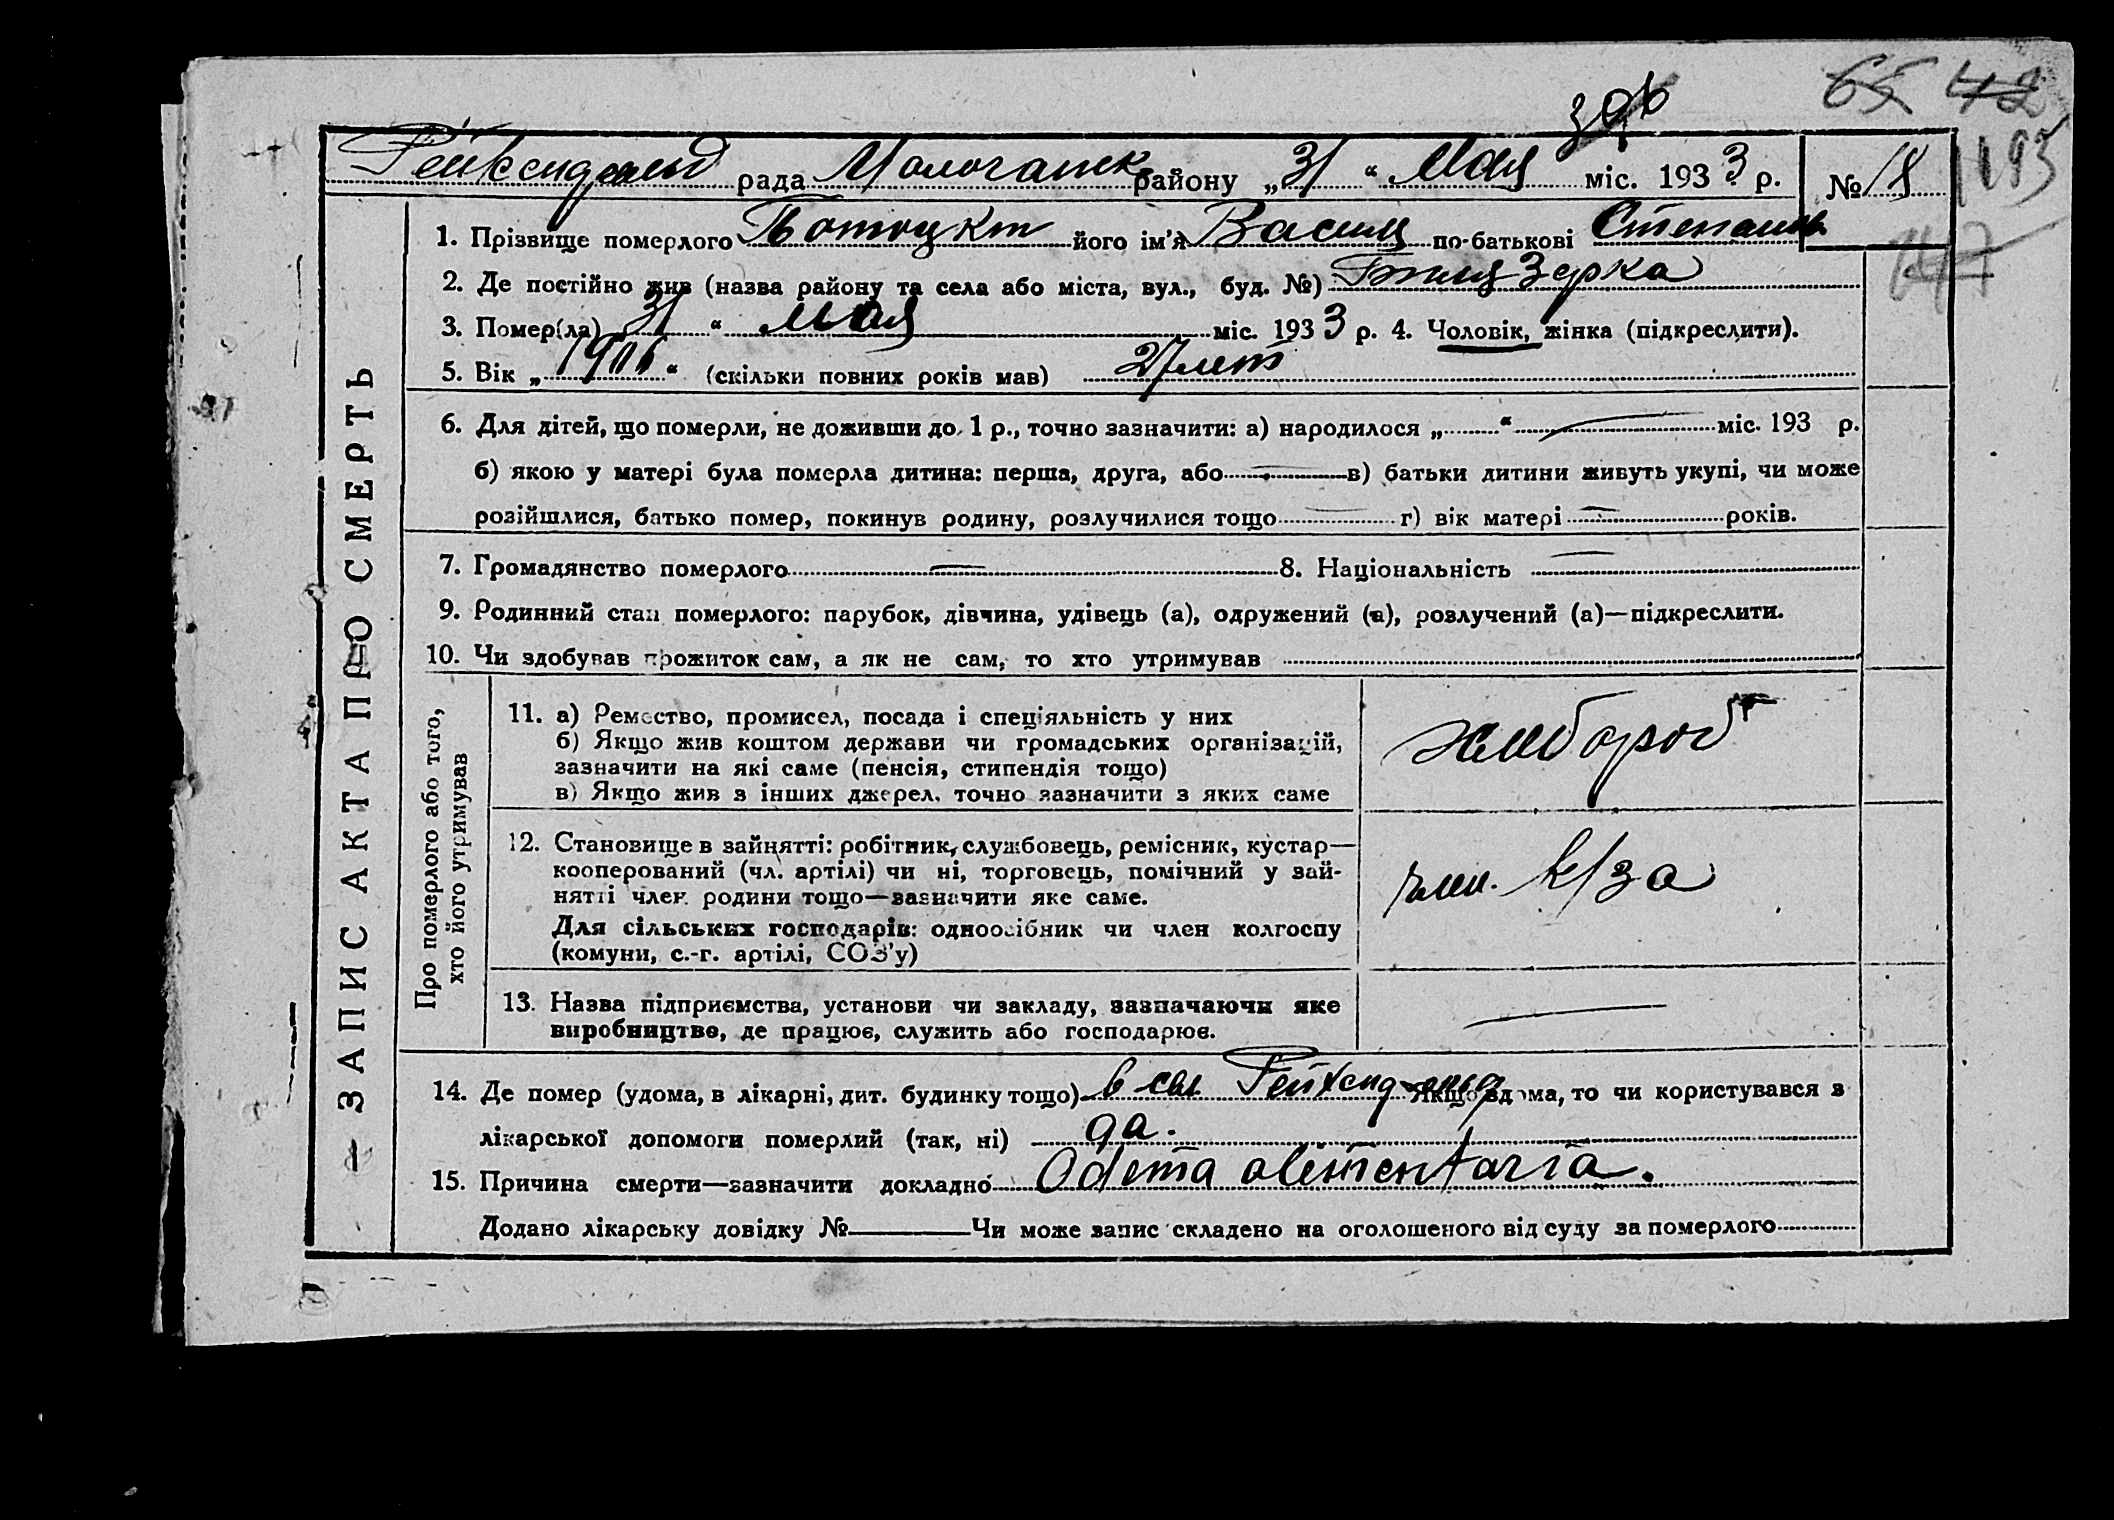 65 42
Рейхенфельд рада Молочанск району „31“ Мая міс. 1933 р. № 18
193
147
ЗАПИС АКТА ПРО СМЕРТЬ
1. Прізвище померлого його ім'я Васил по-батькові Степань
2. Де постійно жив (назва району та села або міста, вул., буд. №)
3. Помер(ла) 31 “ мая міс. 1933 р. 4. Чоловік, жінка (підкреслити).
5. Вік „1906“ (скільки повних років мав) 27 лет
6. Для дітей, що померли, не доживши до 1 р., точно зазначити: а) народилося „ “ міс. 193 р.
б) якою у матері була померла дитина: перша, друга, або в) батьки дитини живуть укупі, чи може
розійшлися, батько помер, покинув родину, розлучилися тощо г) вік матері років.
7. Громадянство померлого 8. Національність
9. Родинний стан померлого: парубок, дівчина, удівець (а), одружений (а), розлучений (а)—підкреслити.
10. Чи здобував прожиток сам, а як не сам, то хто утримував
Про померлого або того,
хто його утримував
11. а) Ремество, промисел, посада і спеціяльність у них
б) Якщо жив коштом держави чи громадських організацій,
зазначити на які саме (пенсія, стипендія тощо)
в) Якщо жив з інших джерел, точно зазначити з яких саме
хлебороб
12. Становище в зайнятті: робітник, службовець, ремісник, кустар—
кооперований (чл. артілі) чи ні, торговець, помічний у зай-
нятті член родини тощо—зазначити яке саме.
Для сільських господарів: одноосібник чи член колгоспу
(комуни, с.-г. артілі, СОЗ'у)
член. к/за
13. Назва підприємства, установи чи закладу, зазначаючи яке
виробництво, де працює, служить або господарює.
14. Де помер (удома, в лікарні, дит. будинку тощо) в сел Рейхенфельд Якщо вдома, то чи користувався з
лікарської допомоги померлий (так, ні) да.
15. Причина смерти—зазначити докладно Odema alimentaria.
Додано лікарську довідку № Чи може запис складено на оголошеного від суду за померлого